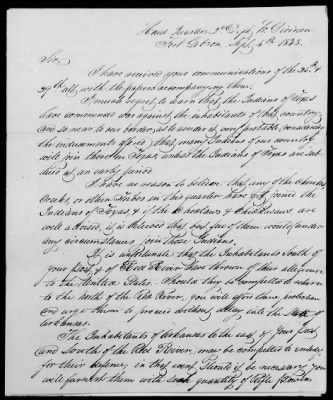 Head Quarters 2d Dept. W. Division
Fort Gibson Sept. 4th 1838.
Sir,
I have received your communications of the 26th &
29th ult. with the papers accompanying them.
I much regret to learn that the Indians of Texas
have commenced war against the inhabitants of that country
and so near to our border, as to render it very probable, considering
the inducements offered, that many Indians of our country
will join those in Texas, unless the Indians of Texas are sub
dued at an early period.
I have no reason to believe that any of the Cherokees,
Creeks, or other Tribes in this quarter have joined the
Indians of Texas, & if the Choctaws & Chickasaws are
well advised, it is believed that but few of them would under
any circumstances join those Indians.
It is unfortunate that the Inhabitants South of
your post, & of Red River have thrown off their allegiance
to the United States. Should they be compelled to return
to the north of the Red River, you will afford them protection
and urge them to proceed without delay into the State of
Arkansas.
The Inhabitants of Arkansas to the east of your post,
and South of the Red River, may be compelled to embody
for their defence, in that event should it be necessary you
will furnish them with such quantity of Rifle Powder